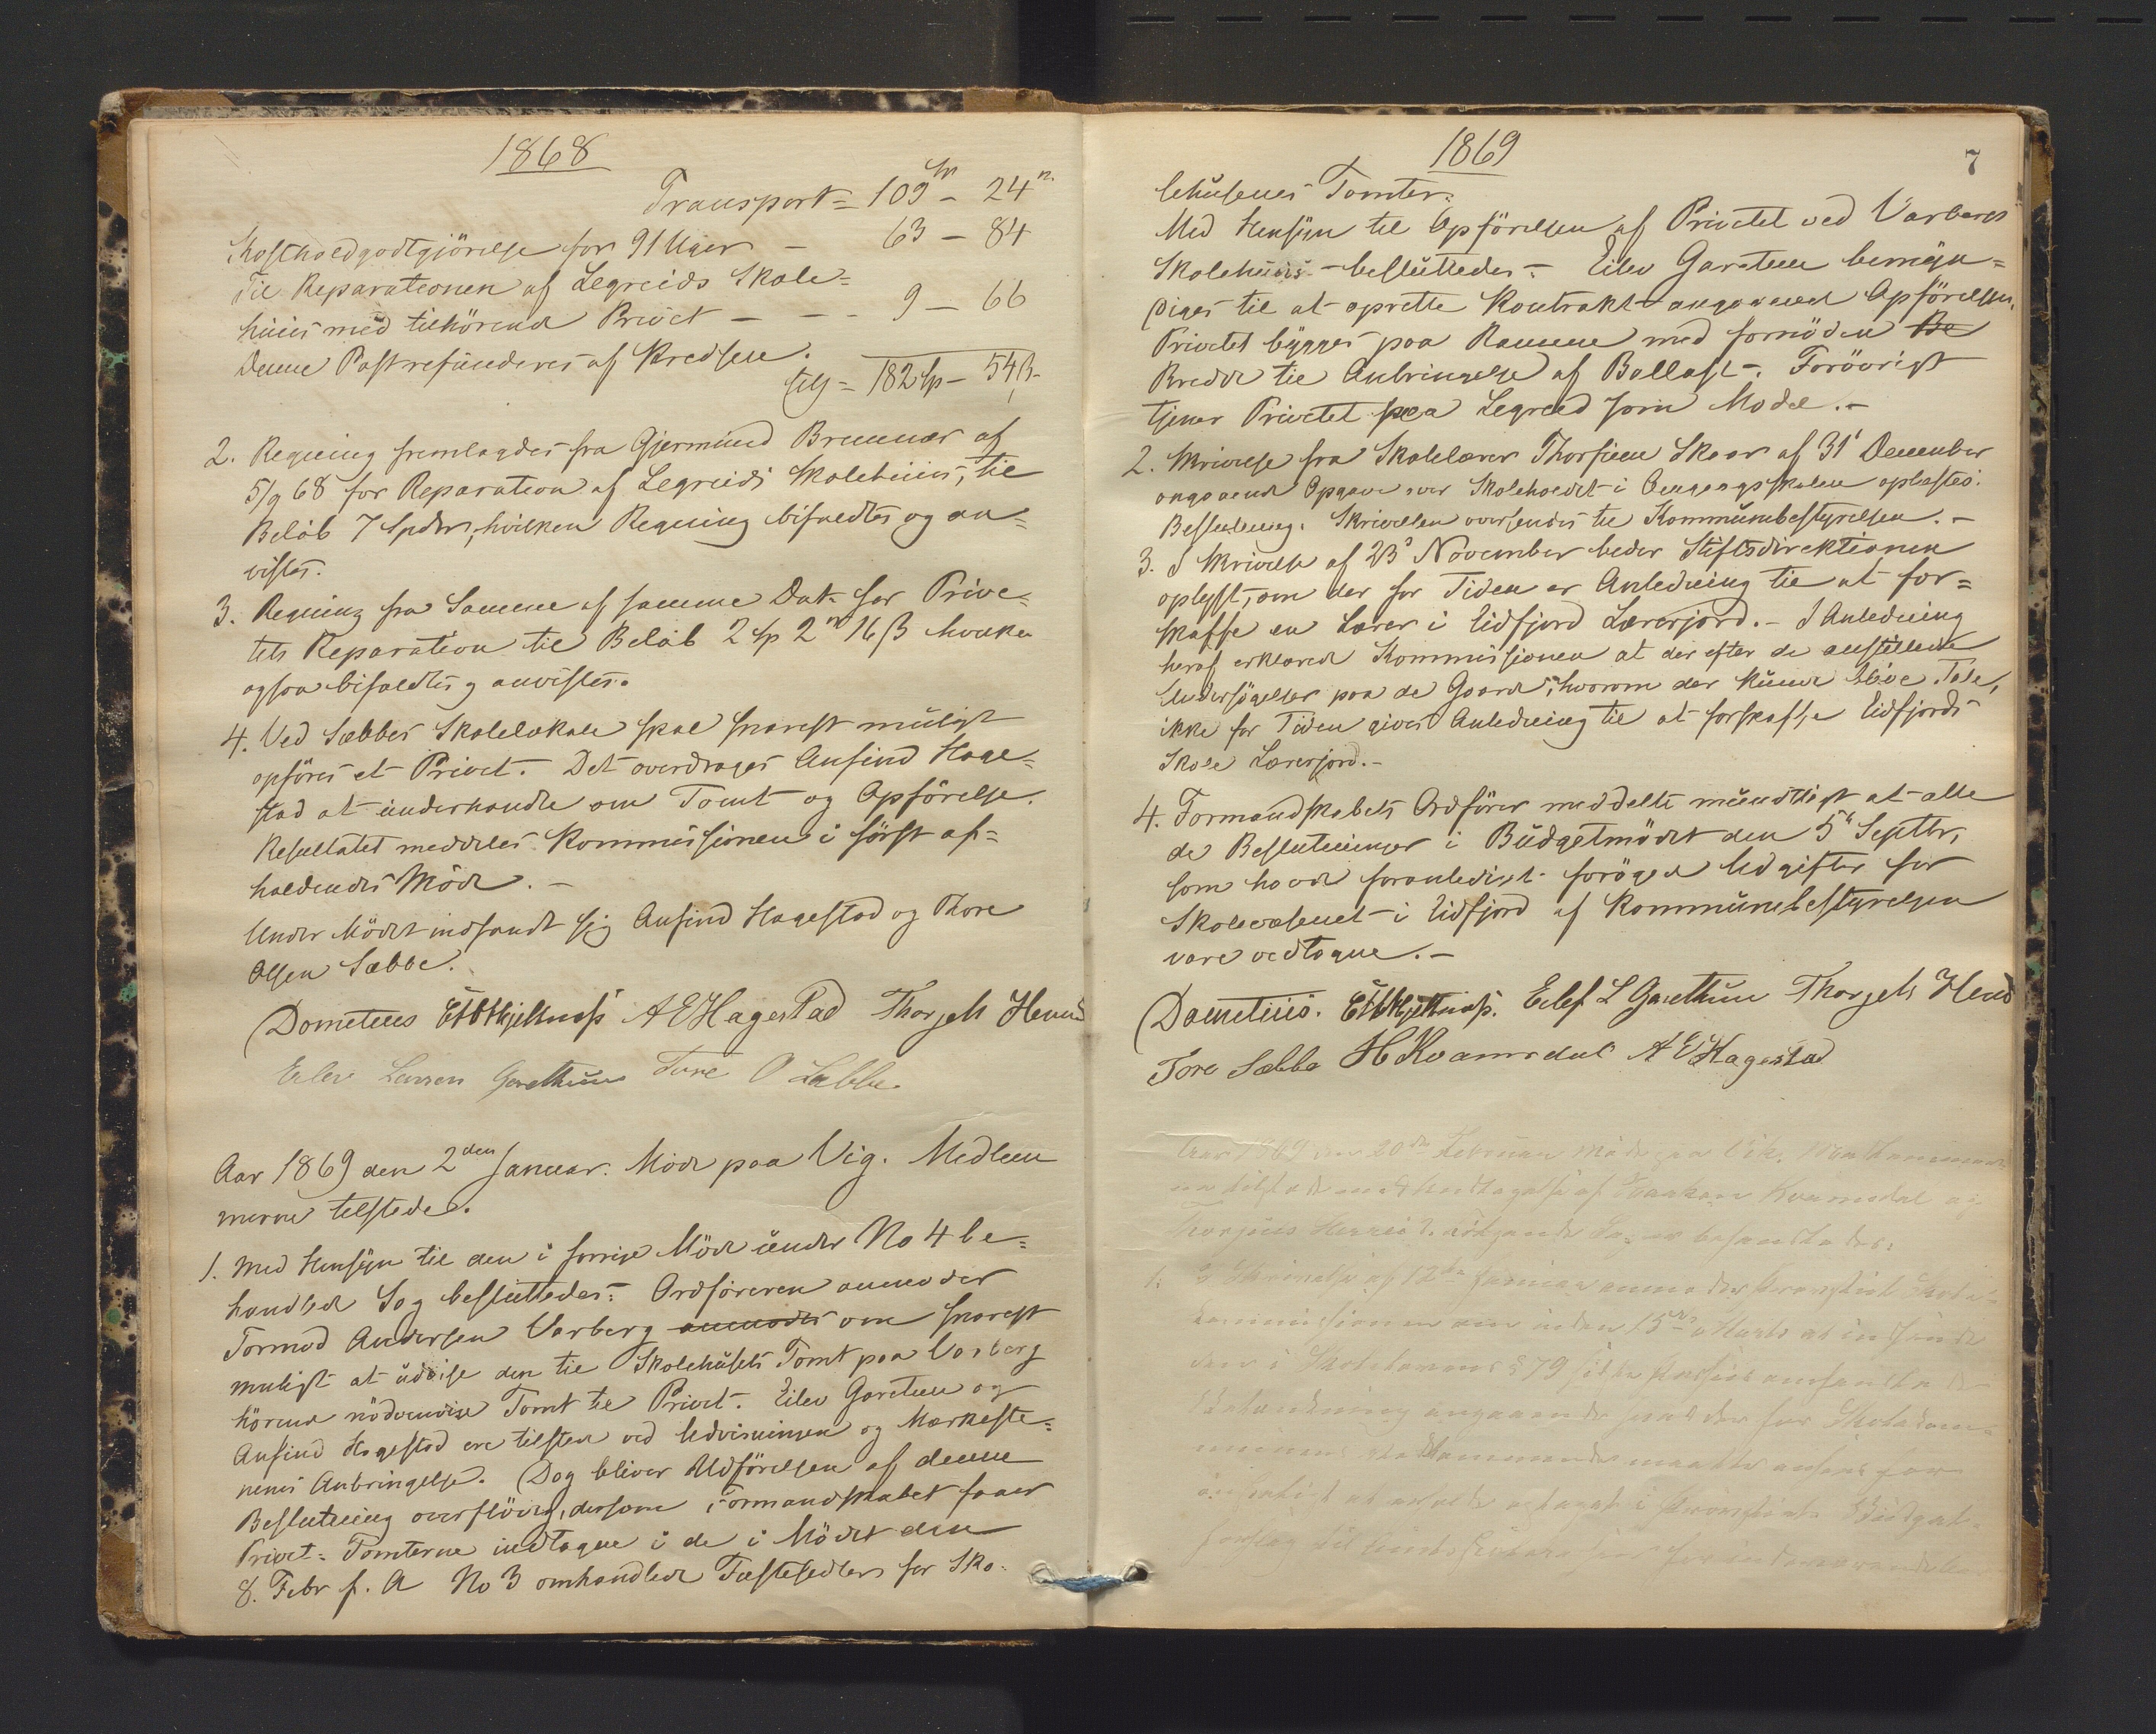 1868
Transport = 109 Sp - 24 ß.
Kostholdgodtgjörelse for 91 Uger - 63 - 84
Til Reparationen af Legreids Skole=
huus med tilhörende Privet - - - 9 - 66
Denne Post refunderes af Kredsen.
182 Sp - 54 ß.
2. Regning fremlagdes fra Gjermund Brunnær af
5/9 68 for Reparation af Legreids Skolehuus, til
Beløb 7 Spdlr, hvilken Regning bifaldtes og an=
vistes.
3. Regning fra Samme af samme Dat. for Prive=
tets Reparation til Beløb 2 Sp 2 16 ß hvilken
ogsaa bifaldtes og anvistes.
4. Ved Sæbbes Skolelokale skal snarest muligt
opføres et Privet. Det overdroges Anfind Hage=
stad at underhandle om Tomt og Opførelse.
Resultatet meddeles Kommissionen i først af=
holdendes Møde. -
Under Mödet indfandt sig Anfind Hagestad og Thore
Olsen Sæbbe.
Dometius Hjeltnæs A E Hagestad Thorjels
Eilev Larsen Garethun Tore O Sæbbe.
Aar 1869 den 2den Januar. Möde paa Vig. Medlem
merne tilstede.
1. Med Hensyn til den i forrige Möde under No 4 be=
handlede Sag besluttedes: Ordföreren anmoder
Tormod Andersen Varberg anmodes om snarest
muligt at udvise den til Skolehusets Tomt paa Varberg
hörende nödvendige Tomt til Privet. Eilev Garetun og
Anfind Hagestad ere tilstede ved Udvisningen og Mærkeste=
nenes Anbringelse. Dog bliver Udförelsen af denne
Beslutning overflödig, dersom Formandskabet faaer
Privet= Tomterne indtagne i de i Mödet den
8. Febr f. A No 3 omhandlede Fæstesedler for Sko=
1869
7
lehusenes Tomter.
Med Hensyn til Opförelsen af Privetet ved Varbergs
Skolehuus - besluttedes: Eilev Garetun bemyn=
diges til at oprette Kontrakt angaaende Opförelsen.
Privetet bygges paa Ramme med fornöden Be
Bredde til Anbringelse af Ballast. Forövrigt
tjener Privetet paa Legreid som Model. -
2. Skrivelse fra Skolelærer Thorfinn Skaar af 31' December
angaaende Opgave over Skoleholdet i Omgangsskolen oplæstes.
Beslutning: Skrivelsen oversendes til Kommunebestyrelsen. -
3. I Skrivelse af 23' November beder Stiftsdirektionen
oplyst, om der for Tiden er Anledning til at for=
skaffe en Lærer i Eidfjord Lærerjord. - I Anledning
heraf erklærede Kommissionen at der efter de anstillede
Undersögelser paa de Gaarde, hvorom der kunde blive Tale,
ikke for Tiden gives Anledning til at forskaffe Eidfjords
Skole Lærerjord. -
4. Formandskabets Ordfører meddelte mundtligt at alle
de Beslutninger i Budgetmödet den 5' Septbr,
som havde foranlediget forögede Udgifter for
Skolevæsenet i Eidfjord af Kommunebestyrelsen
vare vedtagne. -
Dometius. Hjeltnæs. Eilef L Garethun Thorjels
Tore Sæbbe H Kvamsdal A E Hagestad
Aar 1869 den 20de Februar Möde paa Vik.
tilstede med Undtagelse af Haakon Kvamsdal og